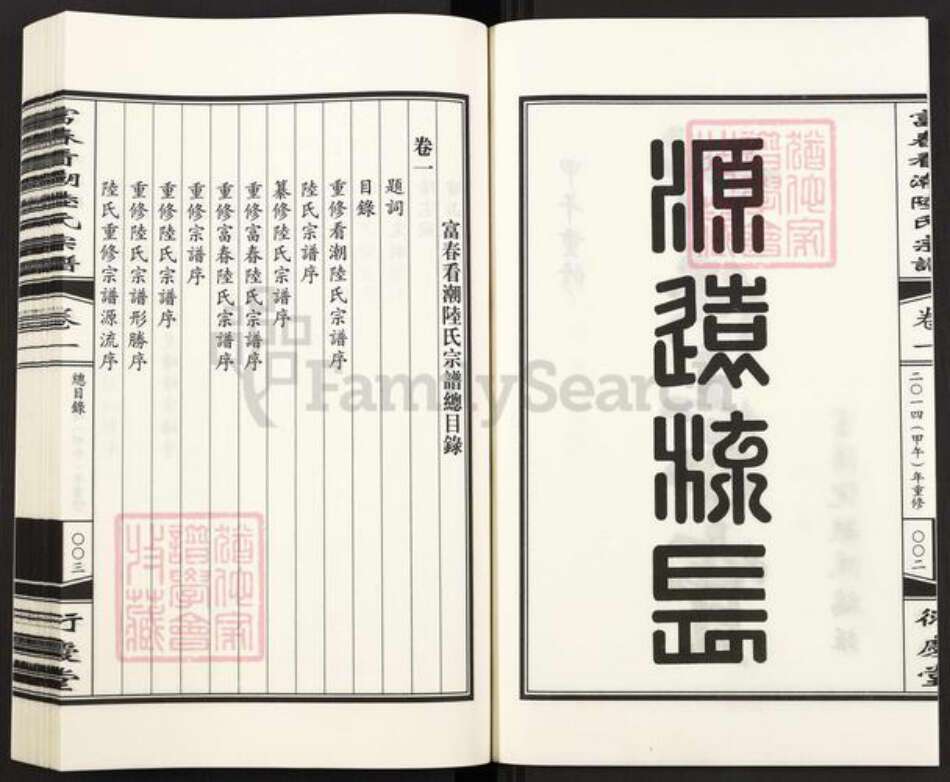 富春看潮陸氏宗譜
卷一
二〇一四(甲午)年重修
〇〇二
衍慶堂
源遠流長
猶他家
譜學會
收藏
富春看潮陸氏宗譜總目錄
卷一
題詞
目錄
重修看潮陸氏宗譜序
陸氏宗譜序
纂修陸氏宗譜序
重修富春陸氏宗譜序
重修富春陸氏宗譜序
重修宗譜序
重修陸氏宗譜序
重修陸氏宗譜形勝序
陸氏重修宗譜源流序
猶他家
譜學會
收藏
富春看潮陸氏宗譜
卷一
總目錄
〇〇三
衍慶堂
FamilySearch